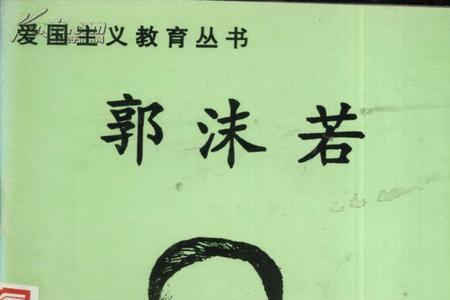 爱国主义教育丛书
郭沫若